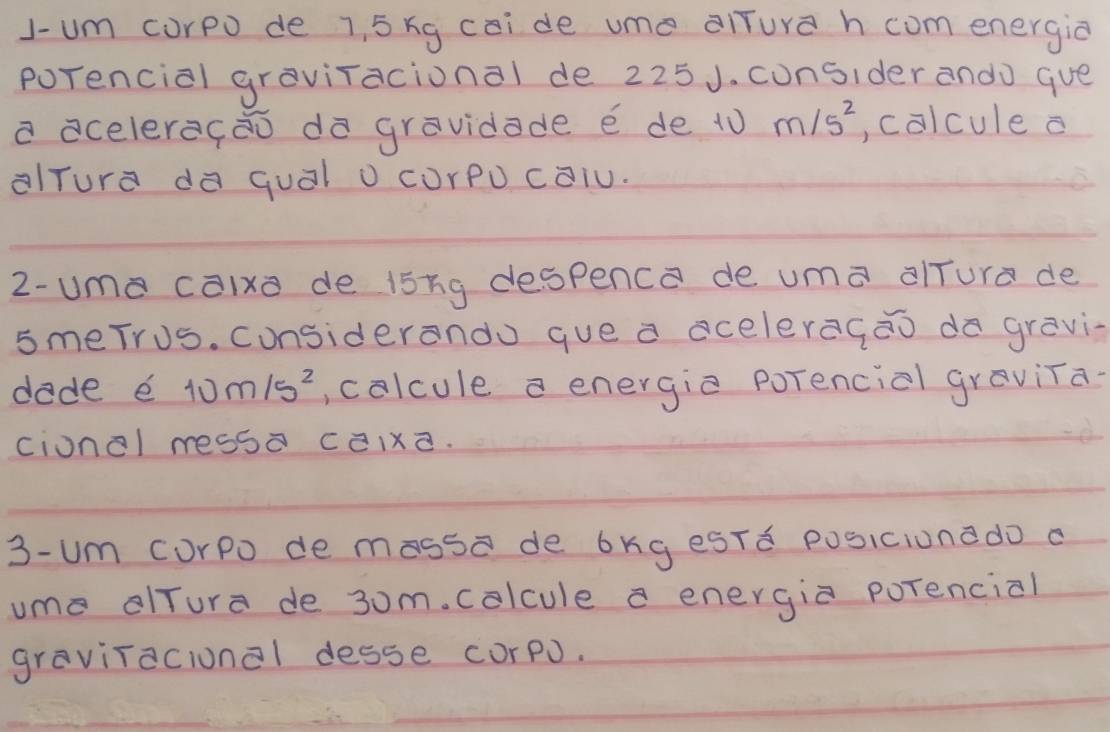 1-um corpo de 7,5 kg cai de uma altura h com energia
potencial gravitacional de 225 J. considerando que
a aceleração da gravidade é de 10 m/s², calcule a
altura da qual o corpo caiu.
2-uma caixa de 15kg despenca de uma altura de
5 metros. considerando que a aceleração da gravi-
dade é 10m/s², calcule a energia potencial gravita-
cional messa caixa.
3-um corpo de massa de 6kg está posicionado a
uma altura de 30m. calcule a energia potencial
gravitacional desse corpo.